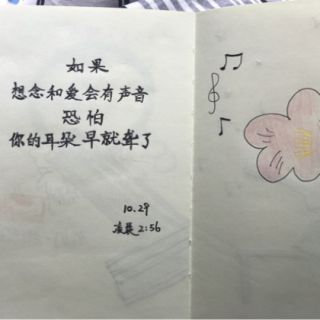 如果
想念和爱会有声音
恐怕
你的耳朵早就聋了
10.29
凌晨2:56